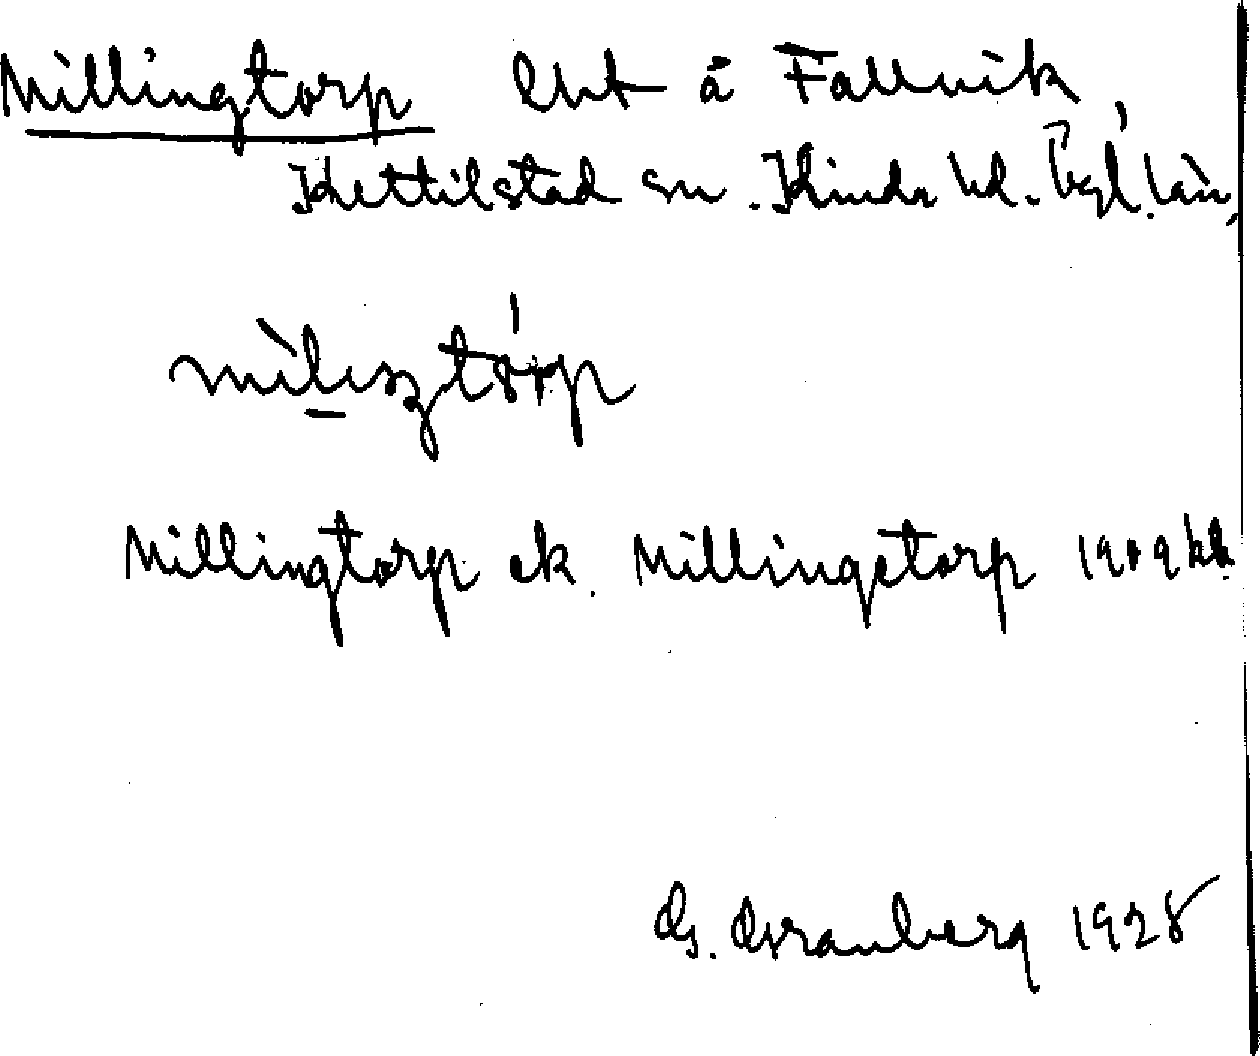 Millingtorp lht å Fallvik,
Kettilstad sn. Kinds hd. Ögl. län,
Millingtorp ek. Millingetorp 1909 kb
G. Granberg 1928